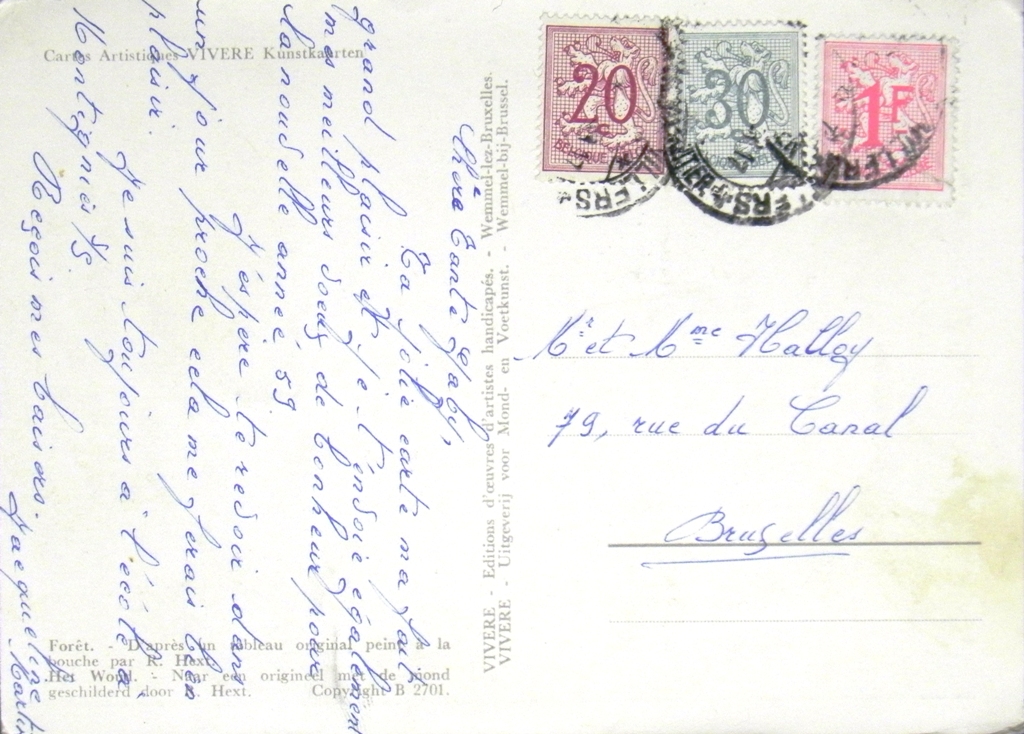 Cartes Artistiques VIVERE Kunstkaarten
Chère Tante Gaby,
Ta jolie carte m'a fait
grand plaisir et je t'envoie également
mes meilleurs voeux de bonheur pour
la nouvelle année 59.
J'éspère te revoir dans
un jour proche cela me ferais bien
plaisir.
Je suis toujours à l'école à
Montignies/S.
Reçois mes baisers.
Jacqueline Martin
Forêt. - D'après un tableau original peint à la
bouche par R. Hext.
Het Woud. - Naar een origineel met de mond
geschilderd door R. Hext. Copyright B 2701.
VIVERE - Editions d'œuvres d'artistes handicapés. - Wemmel-lez-Bruxelles.
VIVERE - Uitgeverij voor Mond- en Voetkunst. - Wemmel-bij-Brussel.
20
c
30
1F
Mr et Mme Halloy
79, rue du Canal
Bruxelles